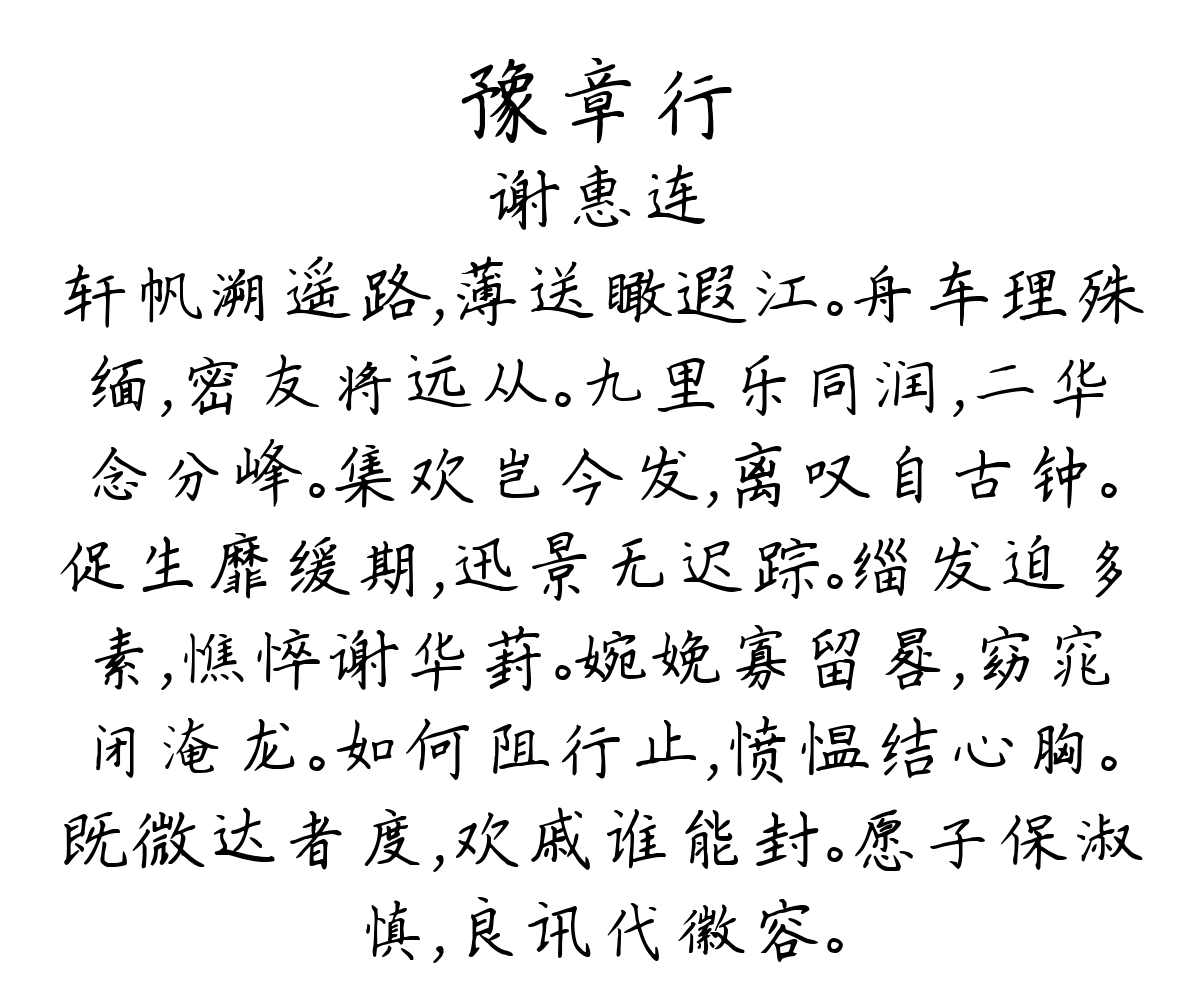 豫章行
谢惠连
轩帆溯遥路,薄送瞰遐江。舟车理殊
缅,密友将远从。九里乐同润,二华
念分峰。集欢岂今发,离叹自古钟。
促生靡缓期,迅景无迟踪。缁发迫多
素,憔悴谢华葑。婉娩寡留晷,窈窕
闭淹龙。如何阻行止,愤愠结心胸。
既微达者度,欢戚谁能封。愿子保淑
慎,良讯代徽容。